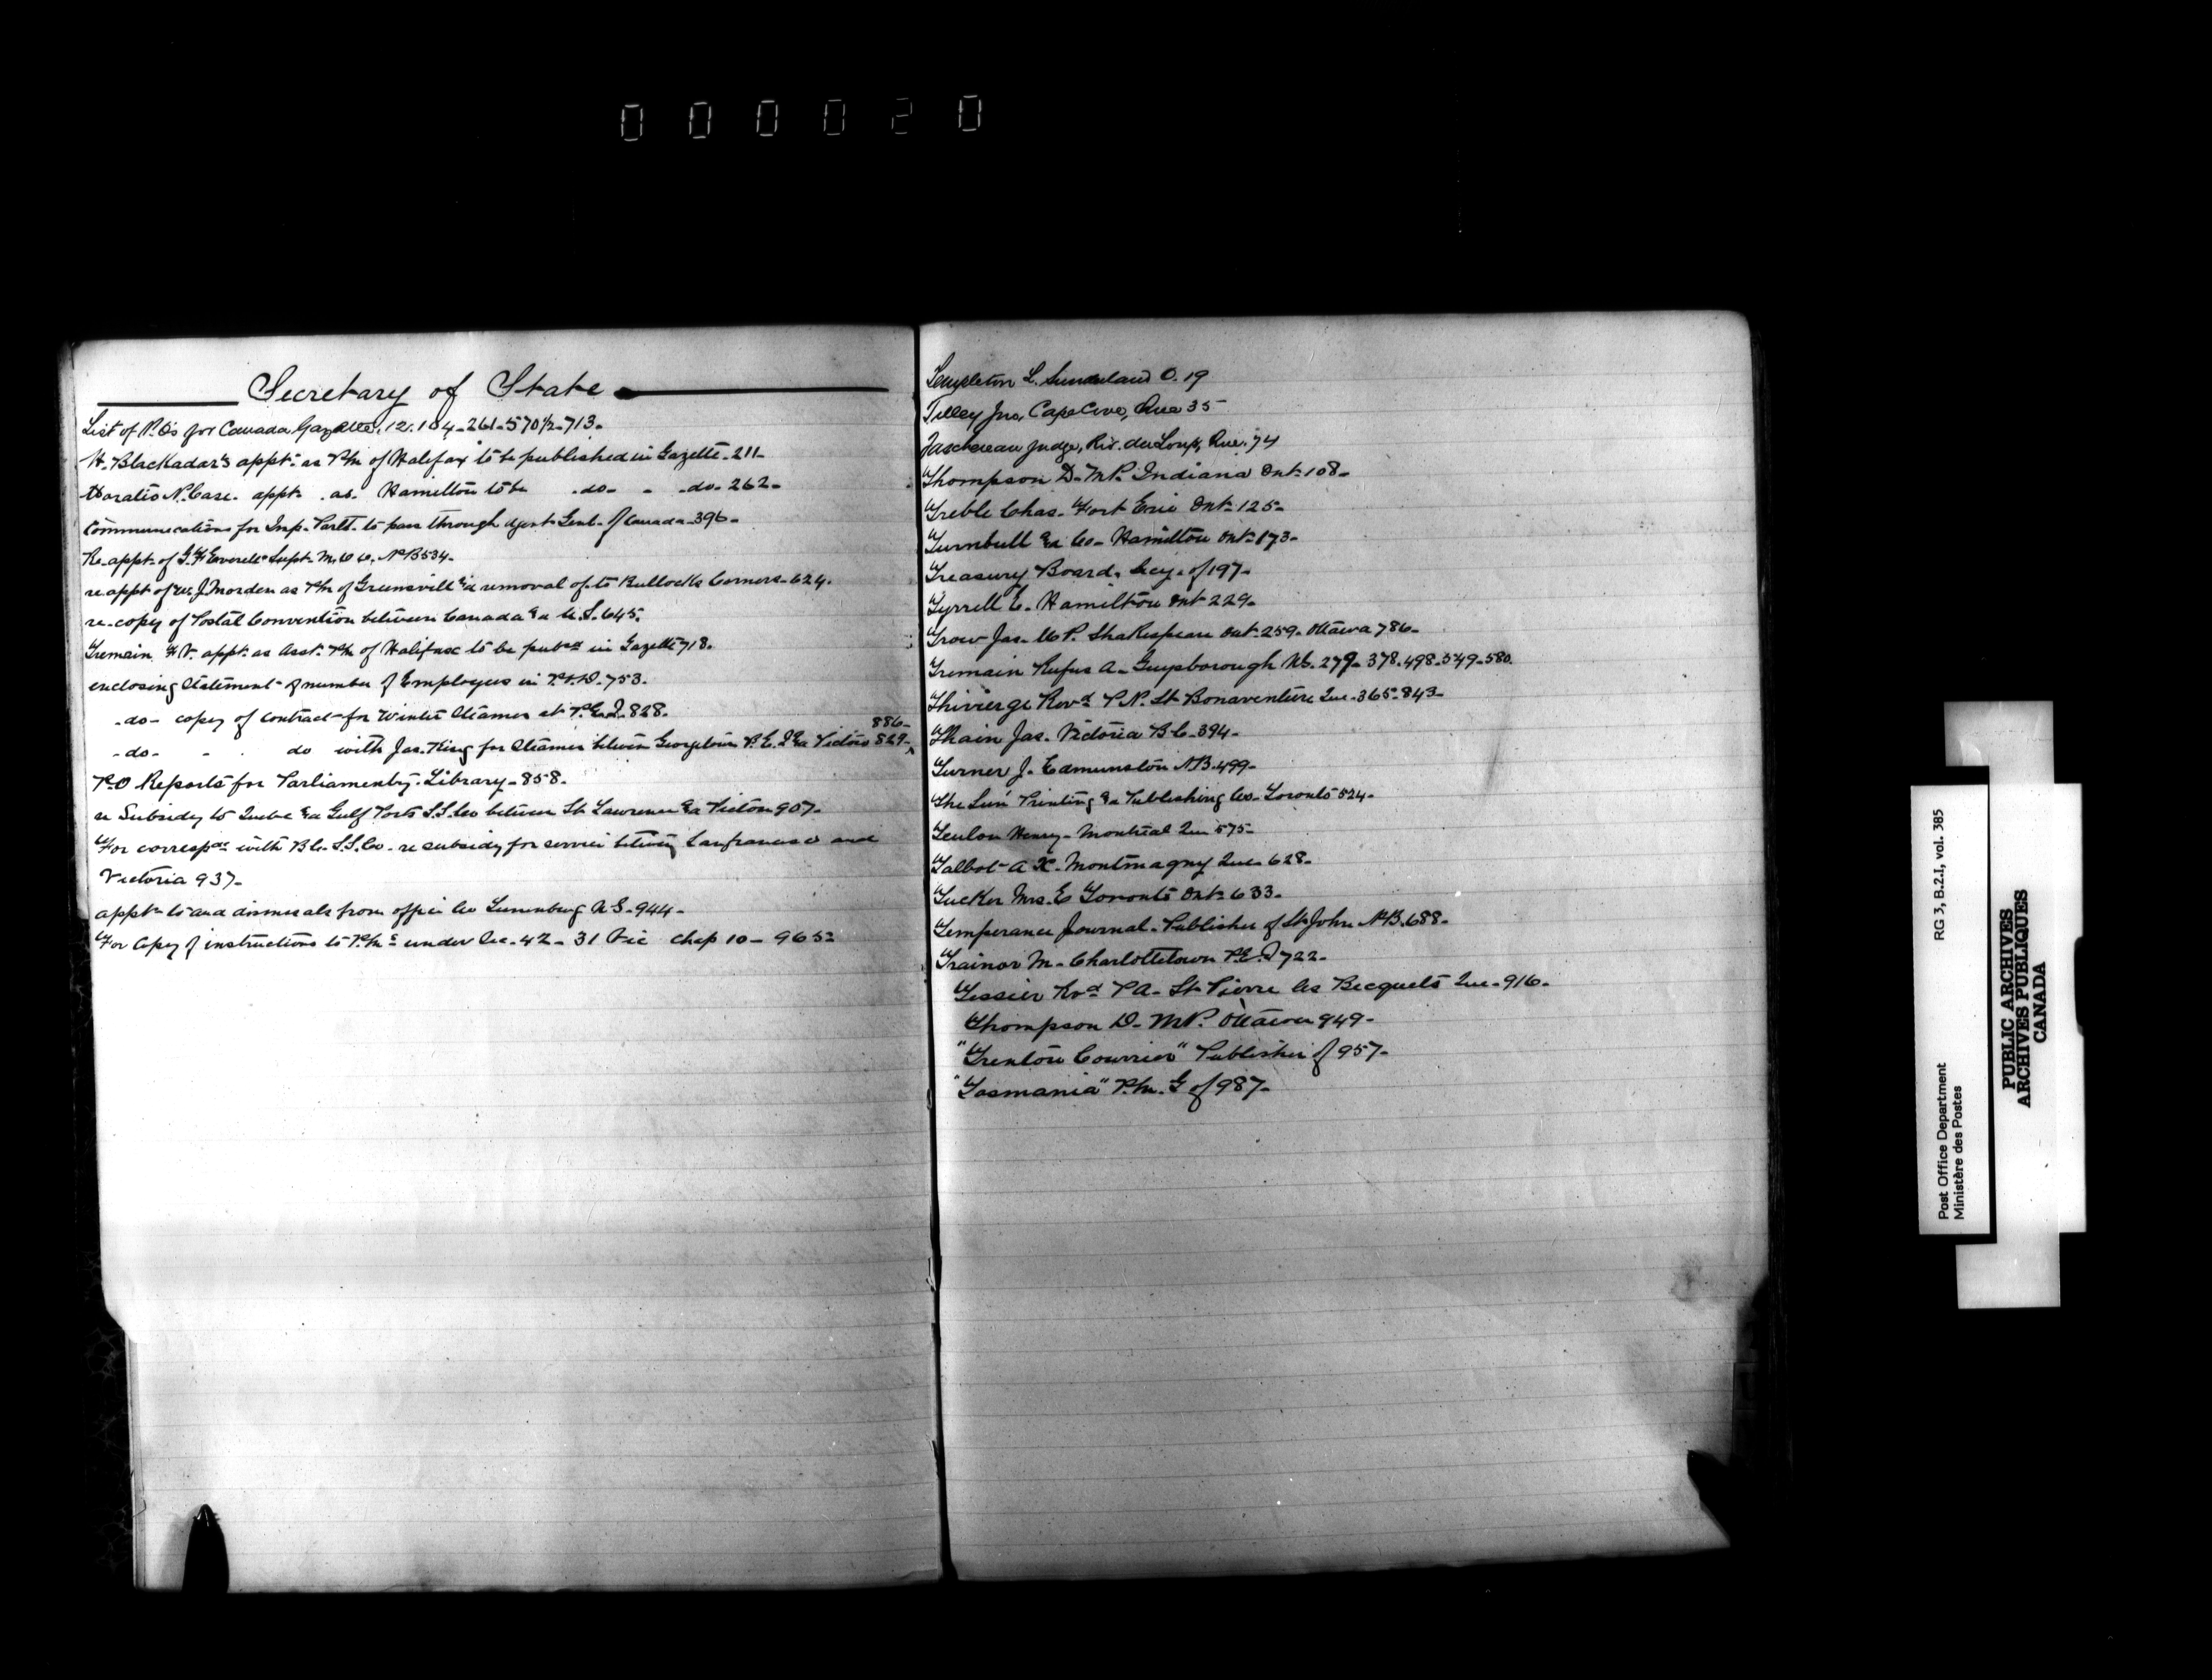 000020
Secretary of State
List of P.O's for Canada Gazette, 12. 104-261-570½-713-
H. Blackadar's appt. as P.M. of Halifax to be published in Gazette-211-
Horatio N. Case. appt. as. Hamilton to be -do- - -do- 262-
Communications for Imp. Parlt. to pass through Agent Genl. of Canada-396-
Re-appt. of Everett Supt. N.B 534-
re appt of W. J. Morden as P.M. of Greensville &a removal of to Bullocks Corners-624.
re-copy of Postal Convention between Canada &a U.S. 645.
Tremain F.W. appt. as Asst. P.M. of Halifax to be pubed in Gazette 718.
enclosing Statement of number of Employees in P.O.D. 753.
-do- copy of contract for Winter Steamer at P.E.I. 828.
886-
-do- - - do with Jas. King for Steamer between Georgetown P.E.I. &a Pictou 829-
P.O Reports for Parliamenty. Library-858-
re Subsidy to Quebec &a Gulf Ports S.S. Co between St Lawrence &a Pictou 907-
For correspce with B.C. S.S. Co- re subsidy for service between Sanfrancisco and
Victoria 937-
appts to and dismissals from office Co Lunenburg N.S-944-
For Copy of instructions to P.M.s under Sec. 42- 31 Vic Chap 10- 965-
Templeton L. Sunderland O. 19
Tilley Jno, Cape Cove, Que 35
Taschereau Judge, Riv. du Loup, Que. 74
Thompson D. M.P. Indiana Ont-108-
Treble Chas. Fort Erie Ont-125-
Turnbull &a Co- Hamilton Ont-173-
Treasury Board, Secy. of 197-
Tyrrell E. Hamilton Ont 229-
Trow Jas. M.P. Shakespeare Ont-259-Ottawa 786-
Tremain Rufus A- Guysborough NS. 279-378-498-549-580.
Thivierge Revd P.N. St Bonaventure Que-365-843-
Thain Jas. Victoria B.C-394-
Turner J. Edmunston N.B. 499-
The Sun Printing &a Publishing Co- Toronto 524-
Henry- Montreal Que 575-
Talbot A Montmagny Que-628-
Tucker Mrs. E Toronto Ont-633-
Temperance Journal-Publisher of St John N.B. 688-
Trainor M- Charlottetown P.E.I 722-
Tessier Revd P A- St Pierre les Becquets Que-916-
Thompson D. M.P. Ottawa 949-
"Trenton Courrier" Publisher of 957-
"Tasmania" P.M. G of 987-
RG 3, B.2.I, vol. 385
Post Office Department
Ministère des Postes
PUBLIC ARCHIVES
ARCHIVES PUBLIQUES
CANADA